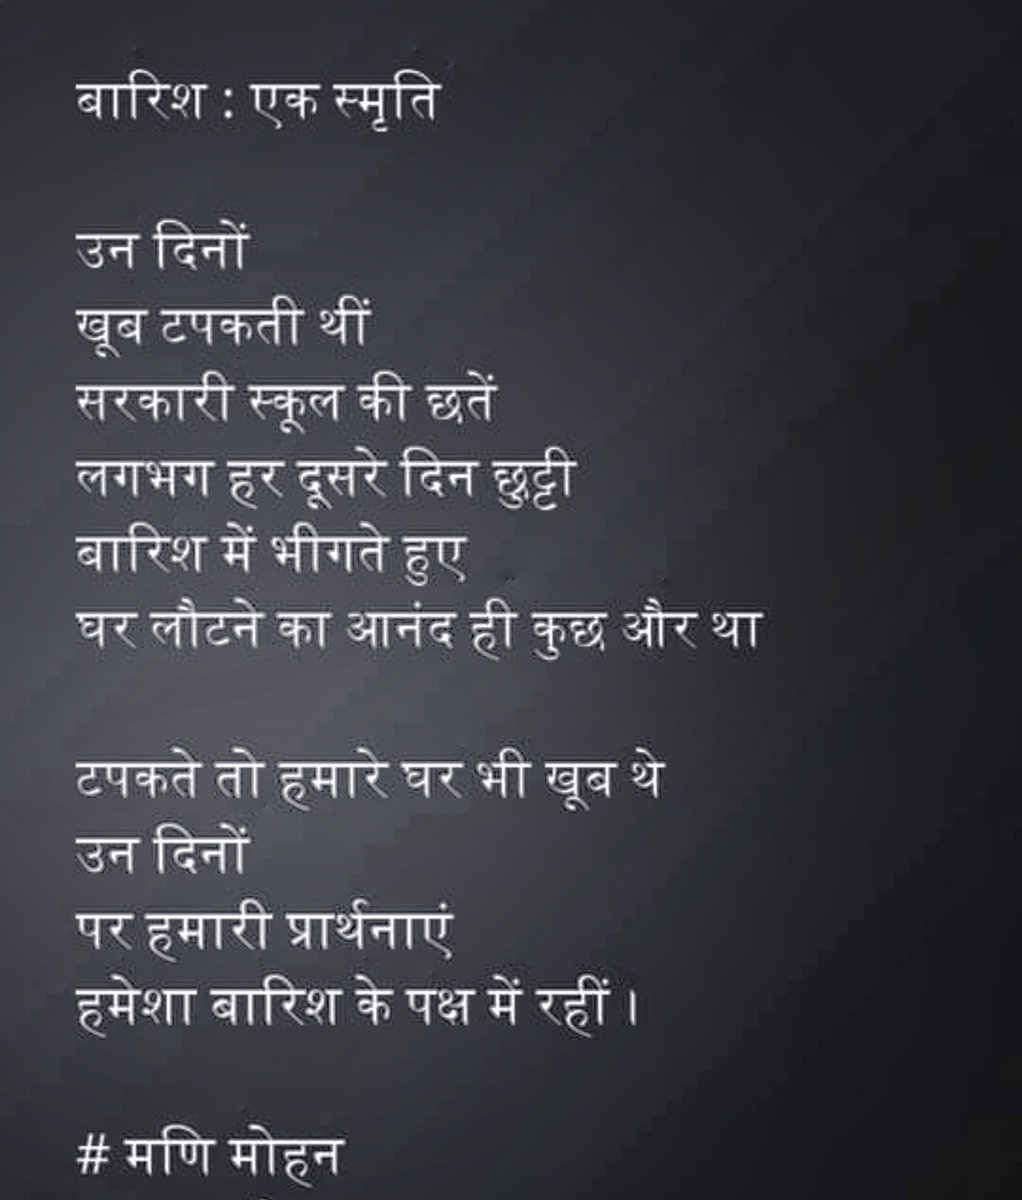 बारिश : एक स्मृति
उन दिनों
खूब टपकती थीं
सरकारी स्कूल की छतें
लगभग हर दूसरे दिन छुट्टी
बारिश में भीगते हुए
घर लौटने का आनंद ही कुछ और था
टपकते तो हमारे घर भी खूब थे
उन दिनों
पर हमारी प्रार्थनाएं
हमेशा बारिश के पक्ष में रहीं ।
# मणि मोहन